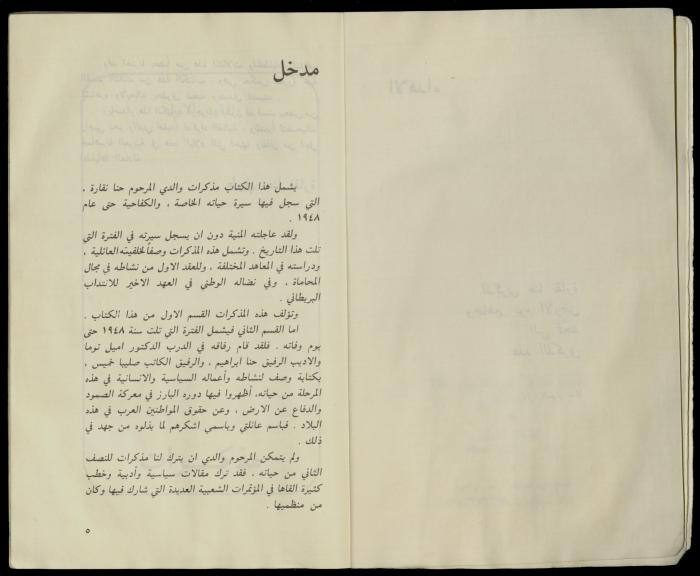 مدخل
يشمل هذا الكتاب مذكرات والدي المرحوم حنا نقارة ،
التي سجل فيها سيرة حياته الخاصة ، والكفاحية حتى عام
١٩٤٨ .
ولقد عاجلته المنية دون ان يسجل سيرته في الفترة التي
تلت هذا التاريخ . وتشمل هذه المذكرات وصفاً لخلفيته العائلية ،
ودراسته في المعاهد المختلفة ، وللعقد الاول من نشاطه في مجال
المحاماة ، وفي نضاله الوطني في العهد الاخير للانتداب
البريطاني .
وتؤلف هذه المذكرات القسم الاول من هذا الكتاب .
اما القسم الثاني فيشمل الفترة التي تلت سنة ١٩٤٨ حتى
يوم وفاته . فلقد قام رفاقه في الدرب الدكتور اميل توما
والاديب الرفيق حنا ابراهيم ، والرفيق الكاتب صليبا خميس ،
بكتابة وصف لنشاطه وأعماله السياسية والانسانية في هذه
المرحلة من حياته، أظهروا فيها دوره البارز في معركة الصمود
والدفاع عن الارض ، وعن حقوق المواطنين العرب في هذه
البلاد . فباسم عائلتي وباسمي اشكرهم لما بذلوه من جهد في
ذلك .
ولم يتمكن المرحوم والدي ان يترك لنا مذكرات للنصف
الثاني من حياته . فقد ترك مقالات سياسية وأدبية وخطب
كثيرة القاها في المؤتمرات الشعبية العديدة التي شارك فيها وكان
من منظميها .
٥